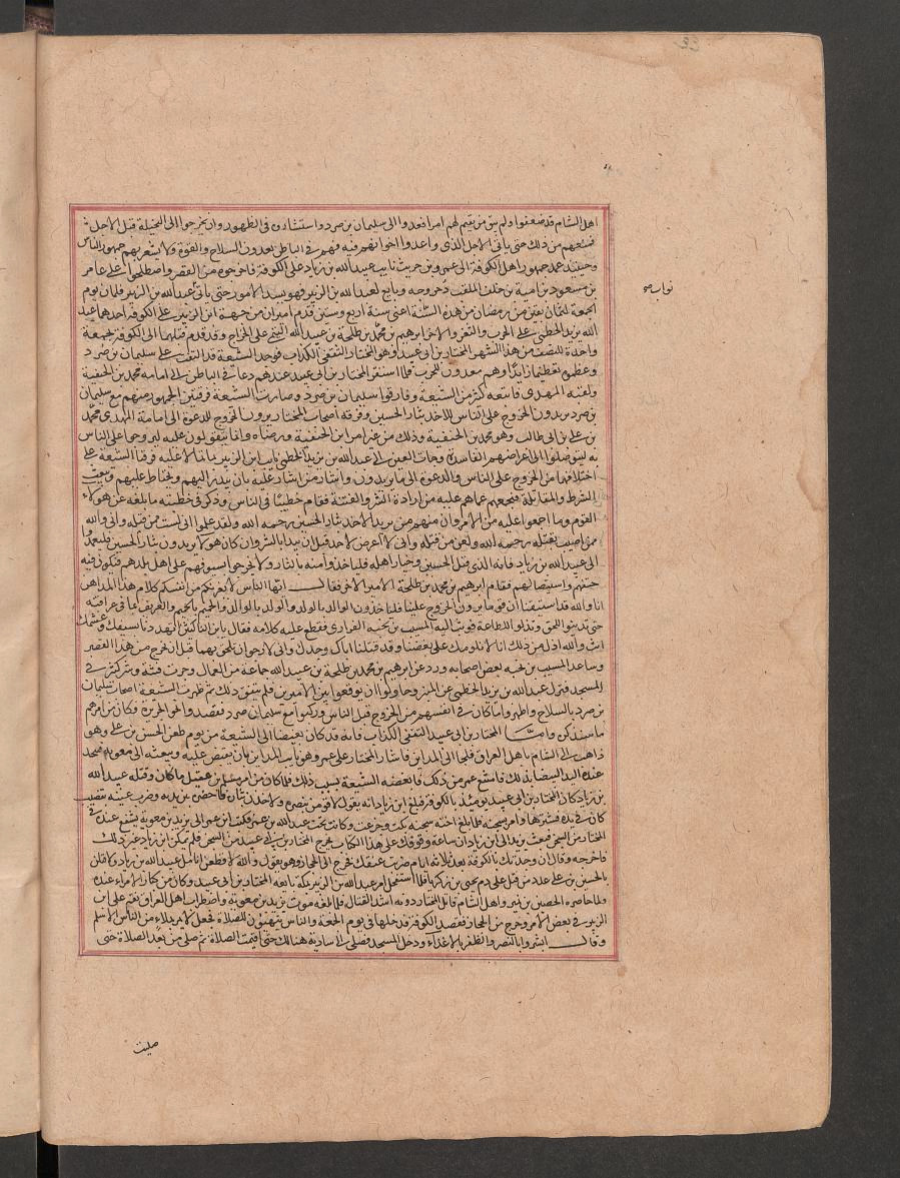 اهل الشام قد ضعفوا ولم يبق من يقيم لهم امرا فعدوا الى سليمان بن صرد واستشاروه في الظهور وان يخرجوا الى النخيلة قبل الاجل
فنهاهم من ذلك حتى يأتي الاجل الذي واعدوا اخوانهم فيه فهم في الباطن يعدون السلاح والقوة ولا يشعر بهم جمهور الناس
وحينئذ عمد جمهور اهل الكوفة الى عمرو بن حريث نايب عبيد الله بن زياد على الكوفة فاخرجوه من القصر واصطلحوا على عامر
بن مسعود بن امية بن خلف الملقب دحروجه وبايع لعبد الله بن الزبير فهو يسد الامور حتى يأتي عبد الله بن الزبير فلما ن يوم
الجمعة لثمان بقين من رمضان من هذه السنة اعني سنة اربع وستين قدم اميران من جهة ابن الزبير على الكوفة احدهما عبد
الله بن يزيد الخطمي على الحرب والثغر والاخر ابراهيم بن محمد بن طلحة بن عبيد الله التيمي على الخراج وقد قدم قبلهما الى الكوفة بجمعة
واحدة للنصف من هذا الشهر المختار بن ابي عبيد وهو المختار الثقفي الكذاب فوجد الشيعة قد التفت على سليمان بن صرد
وعظموه تعظيما زايدا وهم معدون للحرب فلما استقر المختار بن ابي عبيد عندهم دعا في الباطن الى امامة محمد بن الحنفية
ولقبه المهدى فاتبعه كثير من الشيعة وفارقوا سليمان بن صرد وصارت الشيعة فرقتين الجمهور منهم مع سليمان
بن صرد يريدون الخروج على الناس للاخذ بثار الحسين وفرقة اصحاب المختار يرون الخروج للدعوة الى امامة المهدى محمد
بن علي بن ابي طالب وهو محمد بن الحنفية وذلك من غير امر ابن الحنفية ورضاه وانما يتقولون عليه ليروجوا على الناس
به ليتوصلوا الى اغراضهم الفاسدة وجاءت العين الى عبد الله بن يزيد الخطمي نايب ابن الزبير بما تمالا عليه فرقتا الشيعة على
اختلافهما من الخروج على الناس والدعوة الى ما يريدون واشار من اشار عليه بان يبدر اليهم ويحتاط عليهم ويبعث
الشرط والمقاتلة فيقمعهم عما هم عليه من ارادة الشر والفتنة فقام خطيبا في الناس وذكر في خطبته ما بلغه عن هولاء
القوم وما اجمعوا عليه من الامر وان منهم من يريد الاخذ بثار الحسين رحمه الله ولقد علموا اني لست ممن قتله واني والله
ممن اصيب بقتله رحمه الله ولعن من قتله واني لا اعرض لاحد قبل ان يبدا بالشر وان كان هولا يريدون ثار الحسين فليعمدوا
الى عبيد الله بن زياد فانه الذي قتل الحسين وخيار اهله فلياخذوا منه بالثار ولا يخرجوا بسيوفهم على اهل بلدهم فيكون فيه
حتفهم واستيصالهم فقام ابراهيم بن محمد بن طلحة الامير الاخر فقال ايها الناس لا يغرنكم من انفسكم كلام هذا المداهن
انا والله قد استيقنا ان قوما يريدون الخروج علينا فلناخذن الوالد بالولد والولد بالوالد والحميم بالحميم والعريف بما في عرافته
حتى تدينوا للحق وتذلوا للطاعة فوثب اليه المسيب بن نجبة الفزاري فقطع عليه كلامه فقال يابن الناكثين اتهددنا بسيفك وغشمك
انت والله اذل من ذلك انا لا نلومك على بغضنا وقد قتلنا اباك وجدك واني لارجو ان نلحقك بهما قبل ان تخرج من هذا القصر
وساعد المسيب بن نجبة بعض اصحابه ورد عن ابراهيم بن محمد بن طلحة بن عبيد الله جماعة من العمال وجرت فتنة وشر كثير في
المسجد فنزل عبد الله بن يزيد الخطمي عن المنبر وحاولوا ان يوقعوا بين الاميرين فلم يتفق ذلك ثم ظهرت الشيعة اصحاب سليمان
بن صرد بالسلاح واظهروا ما كان في انفسهم من الخروج قبل الناس وركبوا مع سليمان صرد فقصدوا نحو الجزيرة وكان من امرهم
ما سنذكره واما المختار بن ابي عبيد الثقفي الكذاب فانه قد كان بغيضا الى الشيعة من يوم طعن الحسن بن علي وهو
ذاهب الى الشام باهل العراق فلجا الى المداين فاشار المختار على عمه وهو نايب المداين بان يقبض عليه ويبعثه الى معوية فيتخذ
عنده اليد البيضا بذلك فامتنع عمه من ذلك فابغضه الشيعة بسبب ذلك فلما كان من امر مسلم بن عقيل ما كان وقتله عبيد الله
بن زياد كان المختار بن ابي عبيد يومئذ بالكوفة فبلغ ابن زياد انه يقول لاقومن بنصرة ولاخذن ثاره فاحضره بين يديه وضرب عينه بقضيب
كان في يده فشترها وامر بسجنه فلما بلغ اخته سجنه بكت وجزعت وكانت تحت عبد الله بن عمر فكتب ابن عمر الى يزيد بن معوية يشفع عنده في
المختار من السجن فبعث يزيد الى ابن زياد ان ساعة وقوفك على هذا الكتاب تخرج المختار بن ابي عبيد من السجن فلم يمكن ابن زياد غير ذلك
فاخرجه وقال ان وجدتك بالكوفة بعد ثلاثه ايام ضربت عنقك فخرج الى الحجاز وهو يقول والله لاقطعن انامل عبيد الله بن زياد ولاقتلن
بالحسين بن علي عدد من قتل على دم يحيى بن زكريا فلما استفحل امر عبد الله بن الزبير بمكة بايعه المختار بن ابي عبيد وكان من كبار الامراء عنده
ولما حاصره الحصين بن نمير واهل الشام قاتل المختار دونه اشد القتال فلما بلغه موت يزيد بن معوية واضطراب اهل العراق نقم على ابن
الزبير في بعض الامر وخرج من الحجاز فقصد الكوفة فدخلها في يوم الجمعة والناس يتهيئون للصلاة فجعل لا يمر بملاء من الناس الا سلم
وقال ابشروا بالنصر والظفر بالاعداء ودخل المسجد فصلى الى سارية هنالك حتى اقيمت الصلاة ثم صلى من بعد الصلاة حتى
صليت